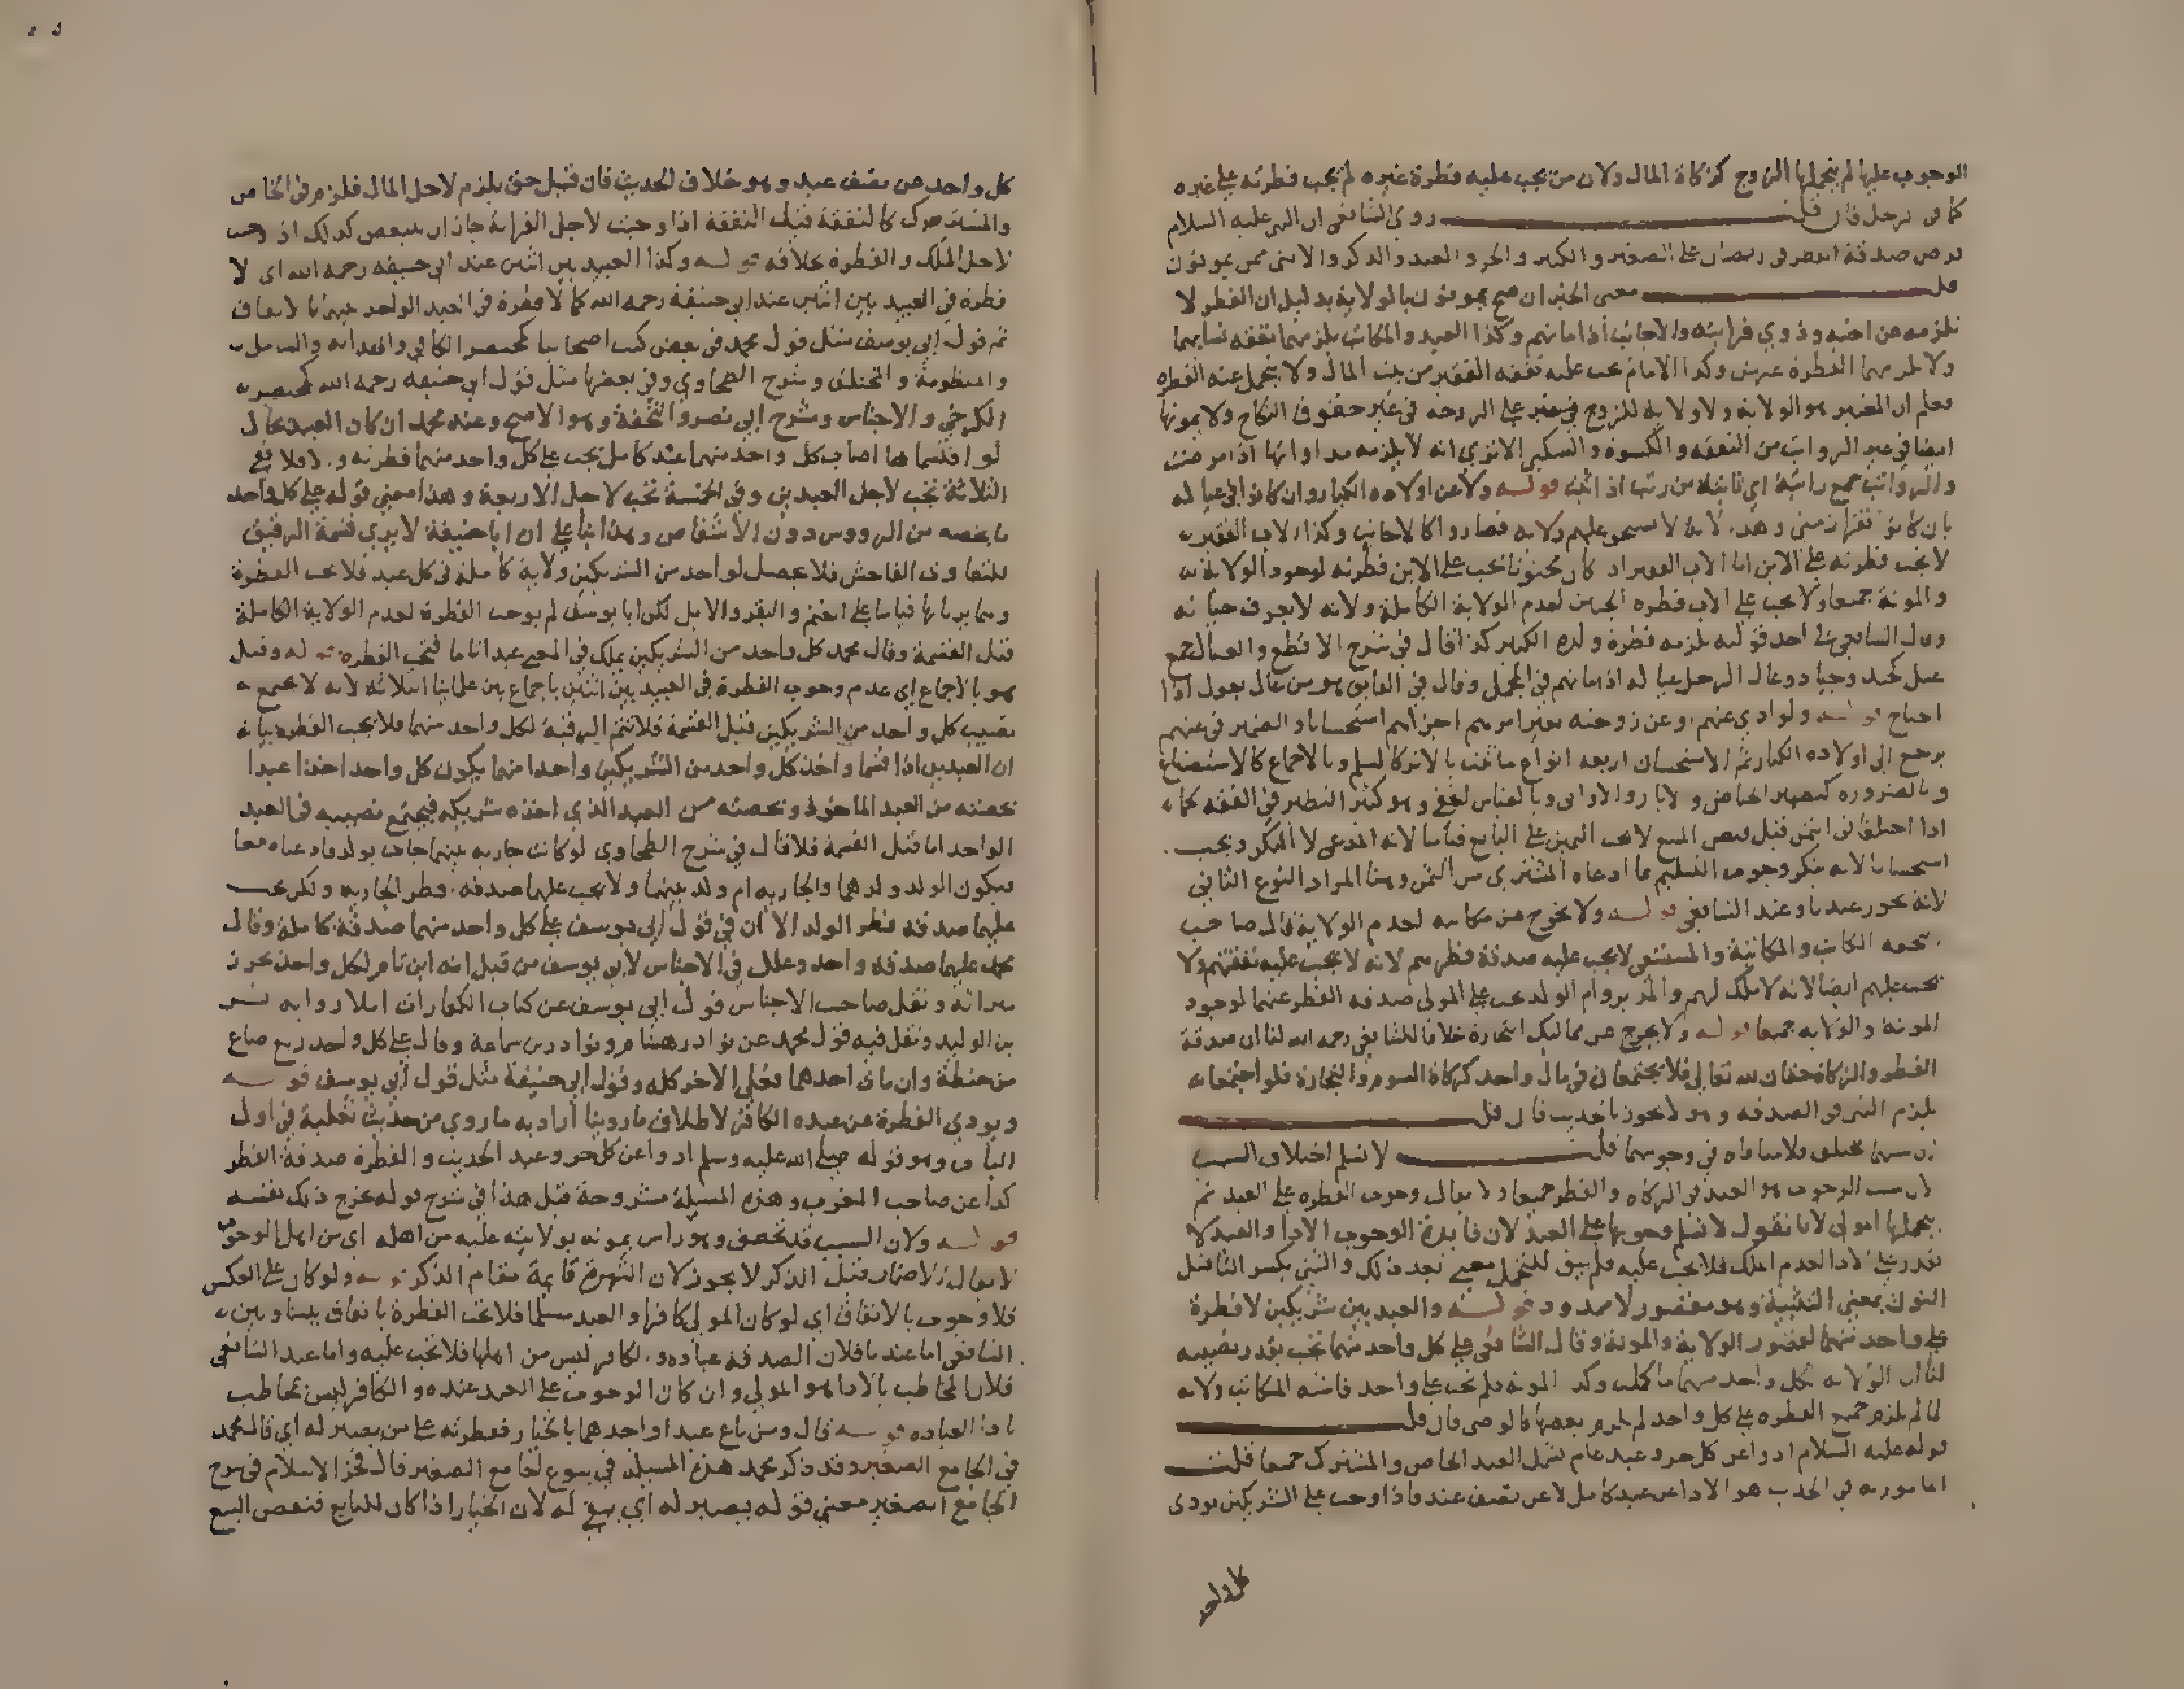 الوجوب عليها لم يتحملها الزوج كزكاة المال ولان من يجب عليه فطرة غيره لم يجب فطرته على غيره
روى الشافعي ان النبي عليه السلام
فرض صدقة الفطر في رمضان على الصغير والكبير والحر والعبد والذكر والانثى ممن يمونون
معنى الخبر ان صح يمونون بالولاية بدليل ان الفطر لا
تلزمه عن اخته وذوي قرابته والاجانب اذا مانهم وكذا العبد والمكاتب يلزمهما نفقة نسايهما
ولا يلزمهما الفطرة عنهن وكذا الامام يجب عليه نفقة الفقير من بيت المال ولا يتحمل عنه الفطرة
فعلم ان المعتبر هو الولاية ولا ولاية للزوج على الزوجة في غير حقوق النكاح ولا يمونها
ايضا في غير الرواتب من النفقة والكسوة والسكنى الا ترى انه لا يلزمه مداواتها اذا مرضت
والرواتب جمع راتبة اي ثابتة من رتب اذا ثبت قوله ولا عن اولاده الكبار وان كانوا في عياله
بان كانوا فقراء زمنى لانه لا يستحق عليهم ولاية فصاروا كالاجانب وكذا الاب الفقير
لا يجب فطرته على الابن اما الاب الفقير اذا كان مجنونا يجب على الابن فطرته لوجود الولاية
والمونة جميعا ولا يجب على الاب فطرة الجنين لعدم الولاية الكاملة ولانه لا يعرف حياته
وقال الشافعي في احد قوليه يلزمه فطرة ولده الكبير كذا قال في شرح الاقطع والعيال جمع
عيل كجيد وجياد وعال الرجل عياله اذا مانهم في المجمل وقال في الفايق هو من عال يعول اذا
احتاج قوله ولو ادى عنهم وعن زوجته بغير امرهم اجزاهم استحسانا والضمير في عنهم
يرجع الى اولاده الكبار ثم الاستحسان اربعة انواع ما ثبت بالاثر كالسلم وبالاجماع كالاستصناع
وبالضرورة كتطهير الحياض والابار والاواني وبالقياس الخفي وهو كثير النظير في الفقه كما
اذا اختلفا في الثمن قبل قبض المبيع لا يجب اليمين على البايع قياسا لانه المدعي لا المنكر ويجب
استحسانا لانه ينكر وجوب التسليم بما ادعاه المشتري من الثمن وهنا المراد النوع الثاني
قوله ولا يخرج عن مكاتبه لعدم الولاية قال صاحب
المكاتب والمكاتبة والمستسعى لا يجب عليه صدقة فطرهم لانه لا يجب عليه نفقتهم ولا
يجب عليهم ايضا لانه لا ملك لهم والمدبر وام الولد يجب على المولى صدقة الفطر عنهما لوجود
المونة والولاية جميعا قوله ولا يخرج عن مماليك التجارة خلافا للشافعي رحمه الله لنا ان صدقة
الفطر والزكاة حقان لله تعالى فلا يجتمعان في مال واحد كزكاة السوم والتجارة فلو اجتمعا
يلزم الثنى في الصدقة وهو لا يجوز بالحديث فان قلت
سببهما مختلف فلا منافاة في وجوبهما قلت لا نسلم اختلاف السبب
لان سبب الوجوب هو العبد في الزكاة والفطر جميعا ولا يقال وجوب الفطرة على العبد ثم
يتحملها المولى لانا نقول لا نسلم وجوبها على العبد لان فايدة الوجوب الادا والعبد لا
يقدر على الادا لعدم الملك فلا يجب عليه فلم يبق للتحمل معنى بعد ذلك والثنى بكسر الثا قبل
النون بمعنى التثنية وهو مقصور لا ممدود قوله والعبد بين شريكين لا فطرة
على واحد منهما لقصور الولاية والمونة وقال الشافعي على كل واحد منهما تجب بقدر نصيبه
لنا ان الولاية لكل واحد منهما ما كملت وكذا المونة فلم تجب على واحد فاشبه المكاتب ولانه
لما لم يلزم جميع الفطرة على كل واحد لم يلزم بعضها كالوصي فان قلت
قوله عليه السلام ادوا عن كل حر وعبد عام يشمل العبد الخاص والمشترك جميعا قلت
المامور به في الحديث هو الادا عن عبد كامل لا عن نصف عبد فاذا وجب على الشريكين يودي
كل واحد
كل واحد عن نصف عبد وهو خلاف الحديث فان قيل حق يلزم لاجل المال فلزم في الخاص
والمشترك كالنفقة قيل النفقة اذا وجبت لاجل القرابة جاز ان يتبعض كذلك اذا وجب
لاجل الملك والفطرة بخلافه قوله وكذا العبيد بين اثنين عند ابي حنيفة رحمه الله اي لا
فطرة في العبيد بين اثنين عند ابي حنيفة رحمه الله كما لا فطرة في العبد الواحد بينهما بالاتفاق
ثم قول ابي يوسف مثل قول محمد في بعض كتب اصحابنا كمختصر الكافي والهداية
والمنظومة والمختلف وشرح الطحاوي وفي بعضها مثل قول ابي حنيفة رحمه الله كمختصر
الكرخي والاجناس وشرح ابي نصر والتحفة وهو الاصح وعند محمد ان كان العبيد بحال
لو اقتسما اصاب كل واحد منهما عبد كامل يجب على كل واحد منهما فطرته والا فلا ففي
الثلاثة تجب لاجل العبدين وفي الخمسة تجب لاجل الاربعة وهذا معنى قوله على كل واحد
ما يخصه من الرووس دون الاشقاص وهذا بنا على ان ابا حنيفة لا يرى قسمة الرقيق
للتفاوت الفاحش فلا يحصل لواحد من الشريكين ولاية كاملة في كل عبد فلا تجب الفطرة
وهما يريانها قياسا على الغنم والبقر والابل لكن ابا يوسف لم يوجب الفطرة لعدم الولاية الكاملة
قبل القسمة وقال محمد كل واحد من الشريكين يملك في المعنى عبدا تاما فتجب الفطرة قوله وقيل
هو بالاجماع اي عدم وجوب الفطرة في العبيد بين اثنين باجماع بين علماينا الثلاثة لانه لا يجتمع
نصيب كل واحد من الشريكين قبل القسمة فلا تتم الرقبة لكل واحد منهما فلا تجب الفطرة بيانه
ان العبدين اذا قسما واخذ كل واحد من الشريكين واحدا منهما يكون كل واحد اخذا عبدا
بحصته من العبد الماخوذ وبحصته من العبد الذي اخذه شريكه فيجتمع نصيبه في العبد
الواحد اما قبل القسمة فلا قال في شرح الطحاوي لو كانت جارية بينهما جات بولد فادعياه معا
فيكون الولد ولدهما والجارية ام ولد بينهما ولا يجب عليهما صدقة فطر الجارية ولكن يجب
عليهما صدقة فطر الولد الا ان في قول ابي يوسف على كل واحد منهما صدقة كاملة وقال
محمد عليهما صدقة واحدة وعلل في الاجناس لابي يوسف من قبل انه ابن تام لكل واحد يحرز
ميراثه ونقل صاحب الاجناس قول ابي يوسف عن كتاب الكفارات املا رواية بشر
بن الوليد ونقل فيه قول محمد عن نوادر هشام ونوادر بن سماعة وقال على كل واحد ربع صاع
من حنطة وان مات احدهما فعلى الاخر كله وقول ابي حنيفة مثل قول ابي يوسف قوله
ويودي الفطرة عن عبده الكافر لاطلاق ما روينا اراد به ما روي من حديث ثعلبة في اول
الباب وهو قوله صلى الله عليه وسلم ادوا عن كل حر وعبد الحديث والفطرة صدقة الفطر
كذا عن صاحب المغرب وهذه المسيلة مشروحة قبل هذا في شرح قوله يخرج ذلك نفسه
قوله ولان السبب قد تحقق وهو راس يمونه بولايته عليه من اهله اي من اهل الوجوب
لا يقال الاضمار قبل الذكر لا يجوز لان الشهرة قايمة مقام الذكر قوله ولو كان على العكس
فلا وجوب بالاتفاق اي لو كان المولى كافرا والعبد مسلما فلا تجب الفطرة باتفاق بيننا وبين
الشافعي اما عندنا فلان الصدقة عبادة والكافر ليس من اهلها فلا تجب عليه واما عند الشافعي
فلان المخاطب بالادا هو المولى وان كان الوجوب على العبد عنده والكافر ليس بمخاطب
بادا العبادة قوله قال ومن باع عبدا واحدهما بالخيار ففطرته على من يصير له اي قال محمد
في الجامع الصغير وقد ذكر محمد هذه المسيلة في بيوع الجامع الصغير قال فخر الاسلام في شرح
الجامع الصغير معنى قوله يصير له اي يبقى له لان الخيار اذا كان للبايع فنقض البيع